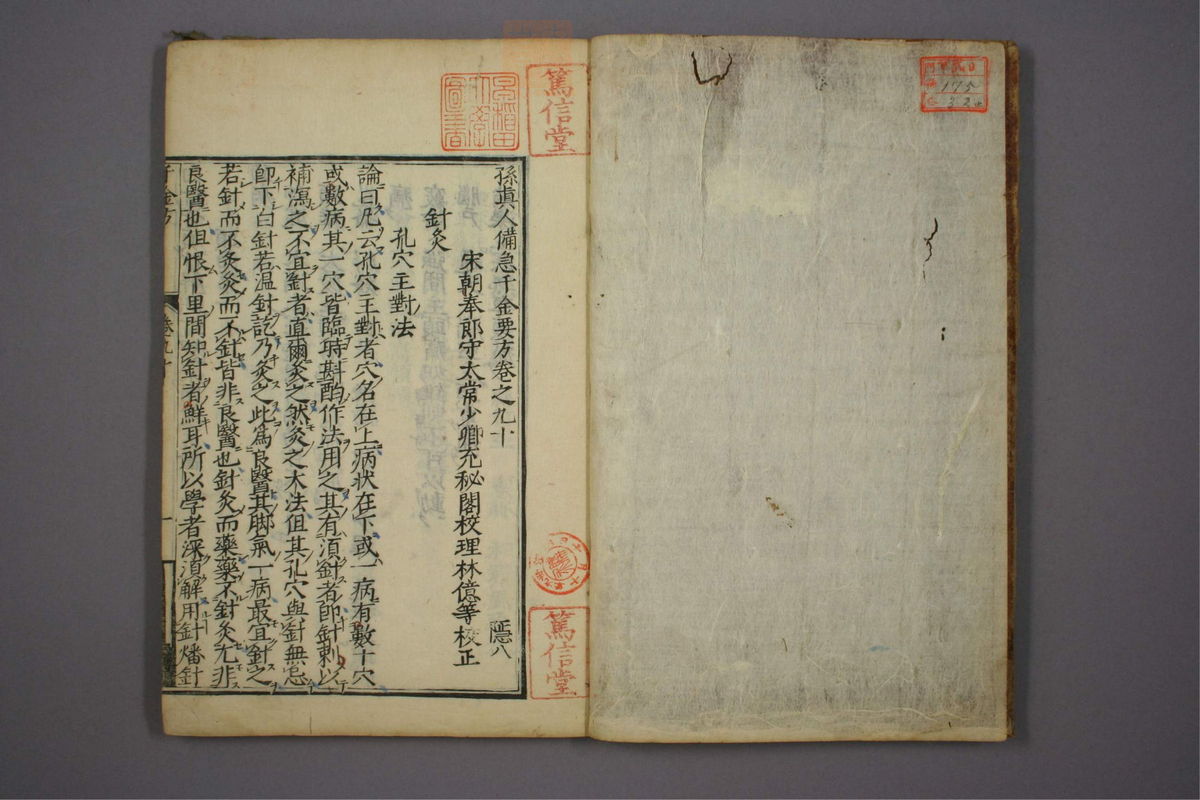 孫眞人備急千金要方卷之九十
隱八
宋朝奉郎守太常少卿充秘閣校理林億等校正
針灸
孔穴主對法
論曰凡云孔穴主對者穴名在上病狀在下或一病有數十穴
或數病其一穴皆臨時斟酌作法用之其有湏針者即針刺以
補瀉之不宜針者直爾灸之然灸之大法但其孔穴與針無忌
即下白針若温針訖乃灸之此爲良醫其脚氣一病最宜針之
若針而不灸灸而不針皆非良醫也針灸而藥藥不針灸尤非
良醫也但恨下里間知針者鮮耳所以學者深湏解用針燔針
千金方
卷九十
一
篤信堂
篤信堂
早稻田大學圖書
175